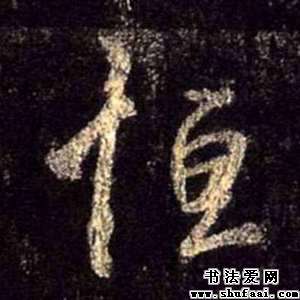 恒
书法爱网
www.shufaai.com